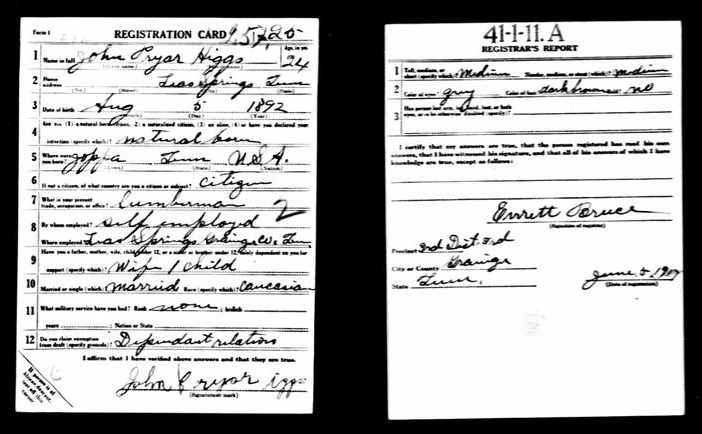 Form 1 REGISTRATION CARD
Age, in yrs.
1 Name in full John Pryar Higgs 24
2 Home address Leas Springs Tenn
3 Date of birth Aug 5 1892
(Month) (Day) (Year)
4 Are you (1) a natural-born citizen, (2) a naturalized citizen, (3) an alien, (4) or have you declared your
intention (specify which)? natural born
5 Where were you born? Joppa Tenn U.S.A.
(Town) (State) (Nation)
6 If not a citizen, of what country are you a citizen or subject? citizen
7 What is your present trade, occupation, or office? Lumberman 2
8 By whom employed? self employd
Where employed? Leas Springs Grainger Co. Tenn
9 Have you a father, mother, wife, child under 12, or a sister or brother under 12, solely dependent on you for
support (specify which)? Wife 1 child
10 Married or single (which)? Married Race (specify which)? Caucasian
11 What military service have you had? Rank none ; branch
years ; Nation or State
12 Do you claim exemption from draft (specify grounds)? Dependant relation
I affirm that I have verified above answers and that they are true.
John Pryar iggs
(Signature or mark)
If person is of African descent, tear off this corner
41-1-11. A
REGISTRAR'S REPORT
1 Tall, medium, or short (specify which)? Medium Slender, medium, or stout (which)? medium
2 Color of eyes? gray Color of hair? dark brown no
3 Has person lost arm, leg, hand, foot, or both
eyes, or is he otherwise disabled (specify)?
I certify that my answers are true, that the person registered has read his own
answers, that I have witnessed his signature, and that all of his answers of which I have
knowledge are true, except as follows:
Everett Bruce
(Signature of registrar)
Precinct 3rd Dist. 3rd
City or County Grainger
State Tenn. June 5, 1917
(Date of registration)